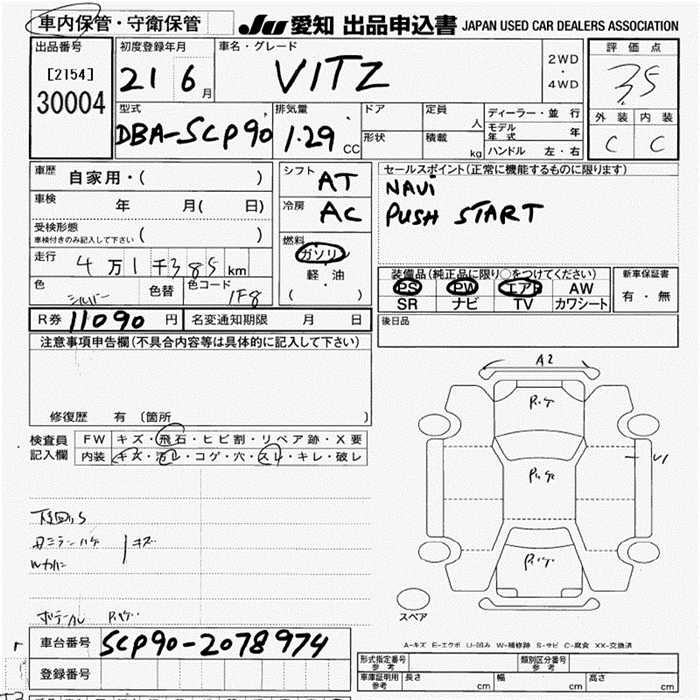 車内保管・守衛保管 JU 愛知 出品申込書 JAPAN USED CAR DEALERS ASSOCIATION
出品番号 初度登録年月 車名・グレード 評価点
[2154] 21 6月 VITZ 2WD・4WD 3.5
30004
外装 内装
C C
型式 排気量 ドア 定員 人 ディーラー・並行
DBA-SCP90 1.29 CC 形状 積載 kg モデル年式 年
ハンドル 左・右
車歴 自家用・( ) シフト AT セールスポイント(正常に機能するものに限ります)
NAVi
車検 年 月( 日) 冷房 AC PUSH START
受検形態 車検付きのみ記入して下さい ( )
燃料 ガソリン 軽・油 ( ・ )
走行 4万1千385km
装備品(純正品に限り○をつけてください) 新車保証書
PS PW エアB AW 有・無
SR ナビ TV カワシート
色 シルバー 色替 色コード 1F8
R券 11090 円 名変通知期限 月 日 後日品
注意事項申告欄(不具合内容等は具体的に記入して下さい)
修復歴 有 〔箇所 〕
検査員記入欄 FW キズ・飛石・ヒビ割・リペア跡・X要
内装 キズ・汚レ・コゲ・穴・スレ・キレ・破レ
A2
U1
キズ
スペア
A-キズ E-エクボ U-凹み W-補修跡 S-サビ C-腐食 XX-交換済
車台番号 SCP90-2078974
登録番号
形式指定番号 参考 類別区分番号 参考
車庫証明用 参考 長さ cm 幅 cm 高さ cm